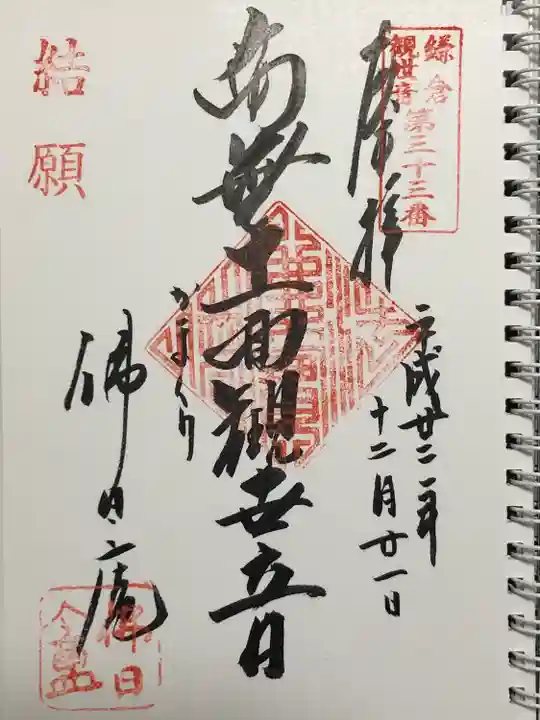 鎌倉
観世音
第三十三番
奉拝
平成廿二年
十二月廿一日
南無十一面観世音
かまくら
佛日庵
結願
佛日